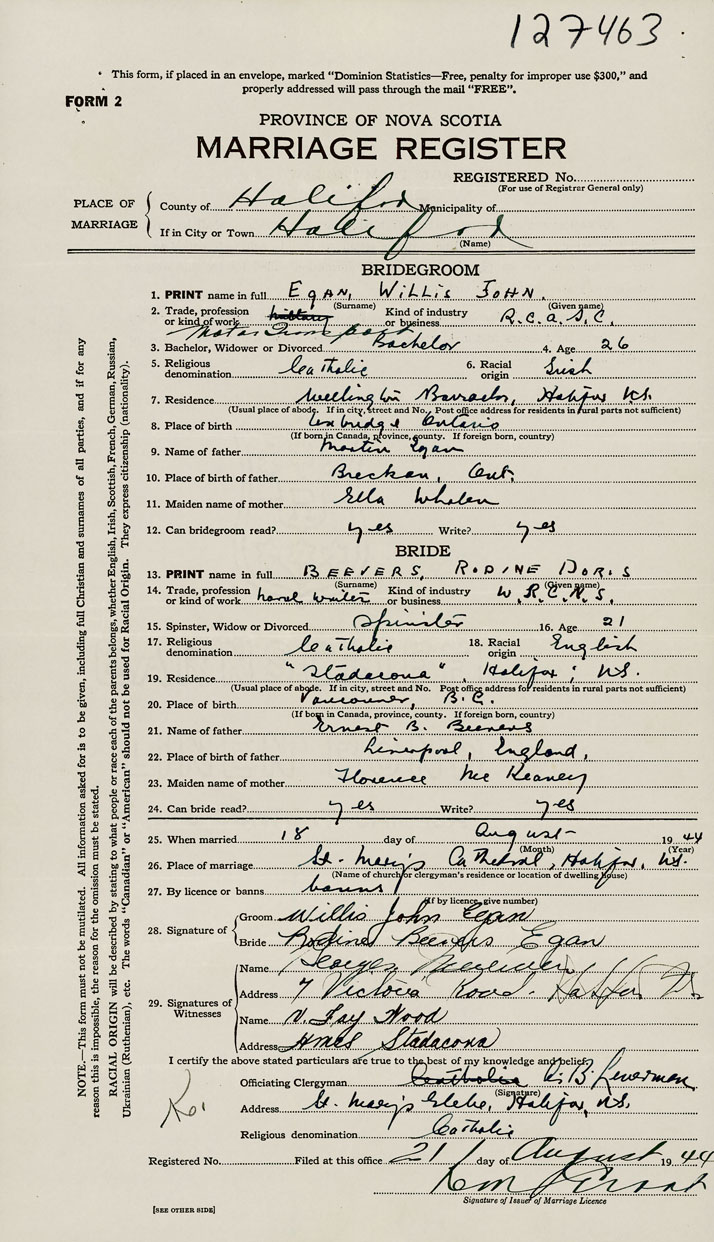 127463
This form, if placed in an envelope, marked "Dominion Statistics—Free, penalty for improper use $300," and
properly addressed will pass through the mail "FREE".
FORM 2
PROVINCE OF NOVA SCOTIA
MARRIAGE REGISTER
REGISTERED No.
(For use of Registrar General only)
PLACE OF MARRIAGE
County of Halifax Municipality of
If in City or Town Halifax
(Name)
BRIDEGROOM
1. PRINT name in full EGAN, WILLIS JOHN
(Surname) (Given name)
2. Trade, profession or kind of work Motor Transport Kind of industry or business R.C.A.S.C.
3. Bachelor, Widower or Divorced Bachelor 4. Age 26
5. Religious denomination Catholic 6. Racial origin Irish
7. Residence Wellington Barracks, Halifax N.S.
(Usual place of abode. If in city, street and No. Post office address for residents in rural parts not sufficient)
8. Place of birth Uxbridge Ontario
(If born in Canada, province, county. If foreign born, country)
9. Name of father Martin Egan
10. Place of birth of father Ont.
11. Maiden name of mother Ella Whalen
12. Can bridegroom read? yes Write? yes
BRIDE
13. PRINT name in full BEEVERS, RODINE DORIS
(Surname) (Given name)
14. Trade, profession or kind of work naval writer Kind of industry or business W.R.C.N.S.
15. Spinster, Widow or Divorced Spinster 16. Age 21
17. Religious denomination Catholic 18. Racial origin English
19. Residence "Stadacona", Halifax, N.S.
(Usual place of abode. If in city, street and No. Post office address for residents in rural parts not sufficient)
20. Place of birth Vancouver, B.C.
(If born in Canada, province, county. If foreign born, country)
21. Name of father Ernest B. Beevers
22. Place of birth of father Liverpool, England,
23. Maiden name of mother Florence Mc Keaney
24. Can bride read? yes Write? yes
25. When married 18 day of August 1944
(Month) (Year)
26. Place of marriage St. Mary's Cathedral, Halifax, N.S.
(Name of church or clergyman's residence or location of dwelling house)
27. By licence or banns banns
(If by licence, give number)
28. Signature of
Groom Willis John Egan
Bride Rodine Beevers Egan
29. Signatures of Witnesses
Name
Address 7 Victoria Road. Halifax N.S.
Name V. Fay Wood
Address HMCS Stadacona
I certify the above stated particulars are true to the best of my knowledge and belief.
Officiating Clergyman
(Signature)
Address St. Mary's Glebe, Halifax, N.S.
Religious denomination Catholic
Registered No. Filed at this office 21 day of August 1944
Signature of Issuer of Marriage Licence
[SEE OTHER SIDE]
NOTE.—This form must not be mutilated. All information asked for is to be given, including full Christian and surnames of all parties, and if for any
reason this is impossible, the reason for the omission must be stated.
RACIAL ORIGIN will be described by stating to what people or race each of the parents belongs, whether English, Irish, Scottish, French, German, Russian,
Ukrainian (Ruthenian), etc. The words "Canadian" or "American" should not be used for Racial Origin. They express citizenship (nationality).